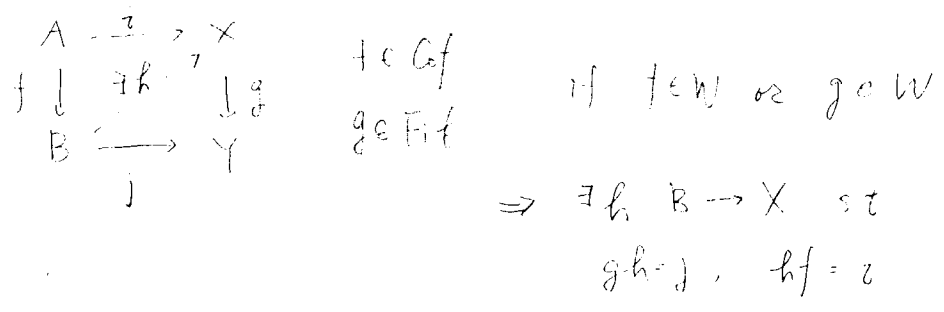 A i X
f ∃h g
B Y
j
f ∈ Cof
g ∈ Fib
if f ∈ W or g ∈ W
⇒ ∃h B → X st
gh = j, hf = i